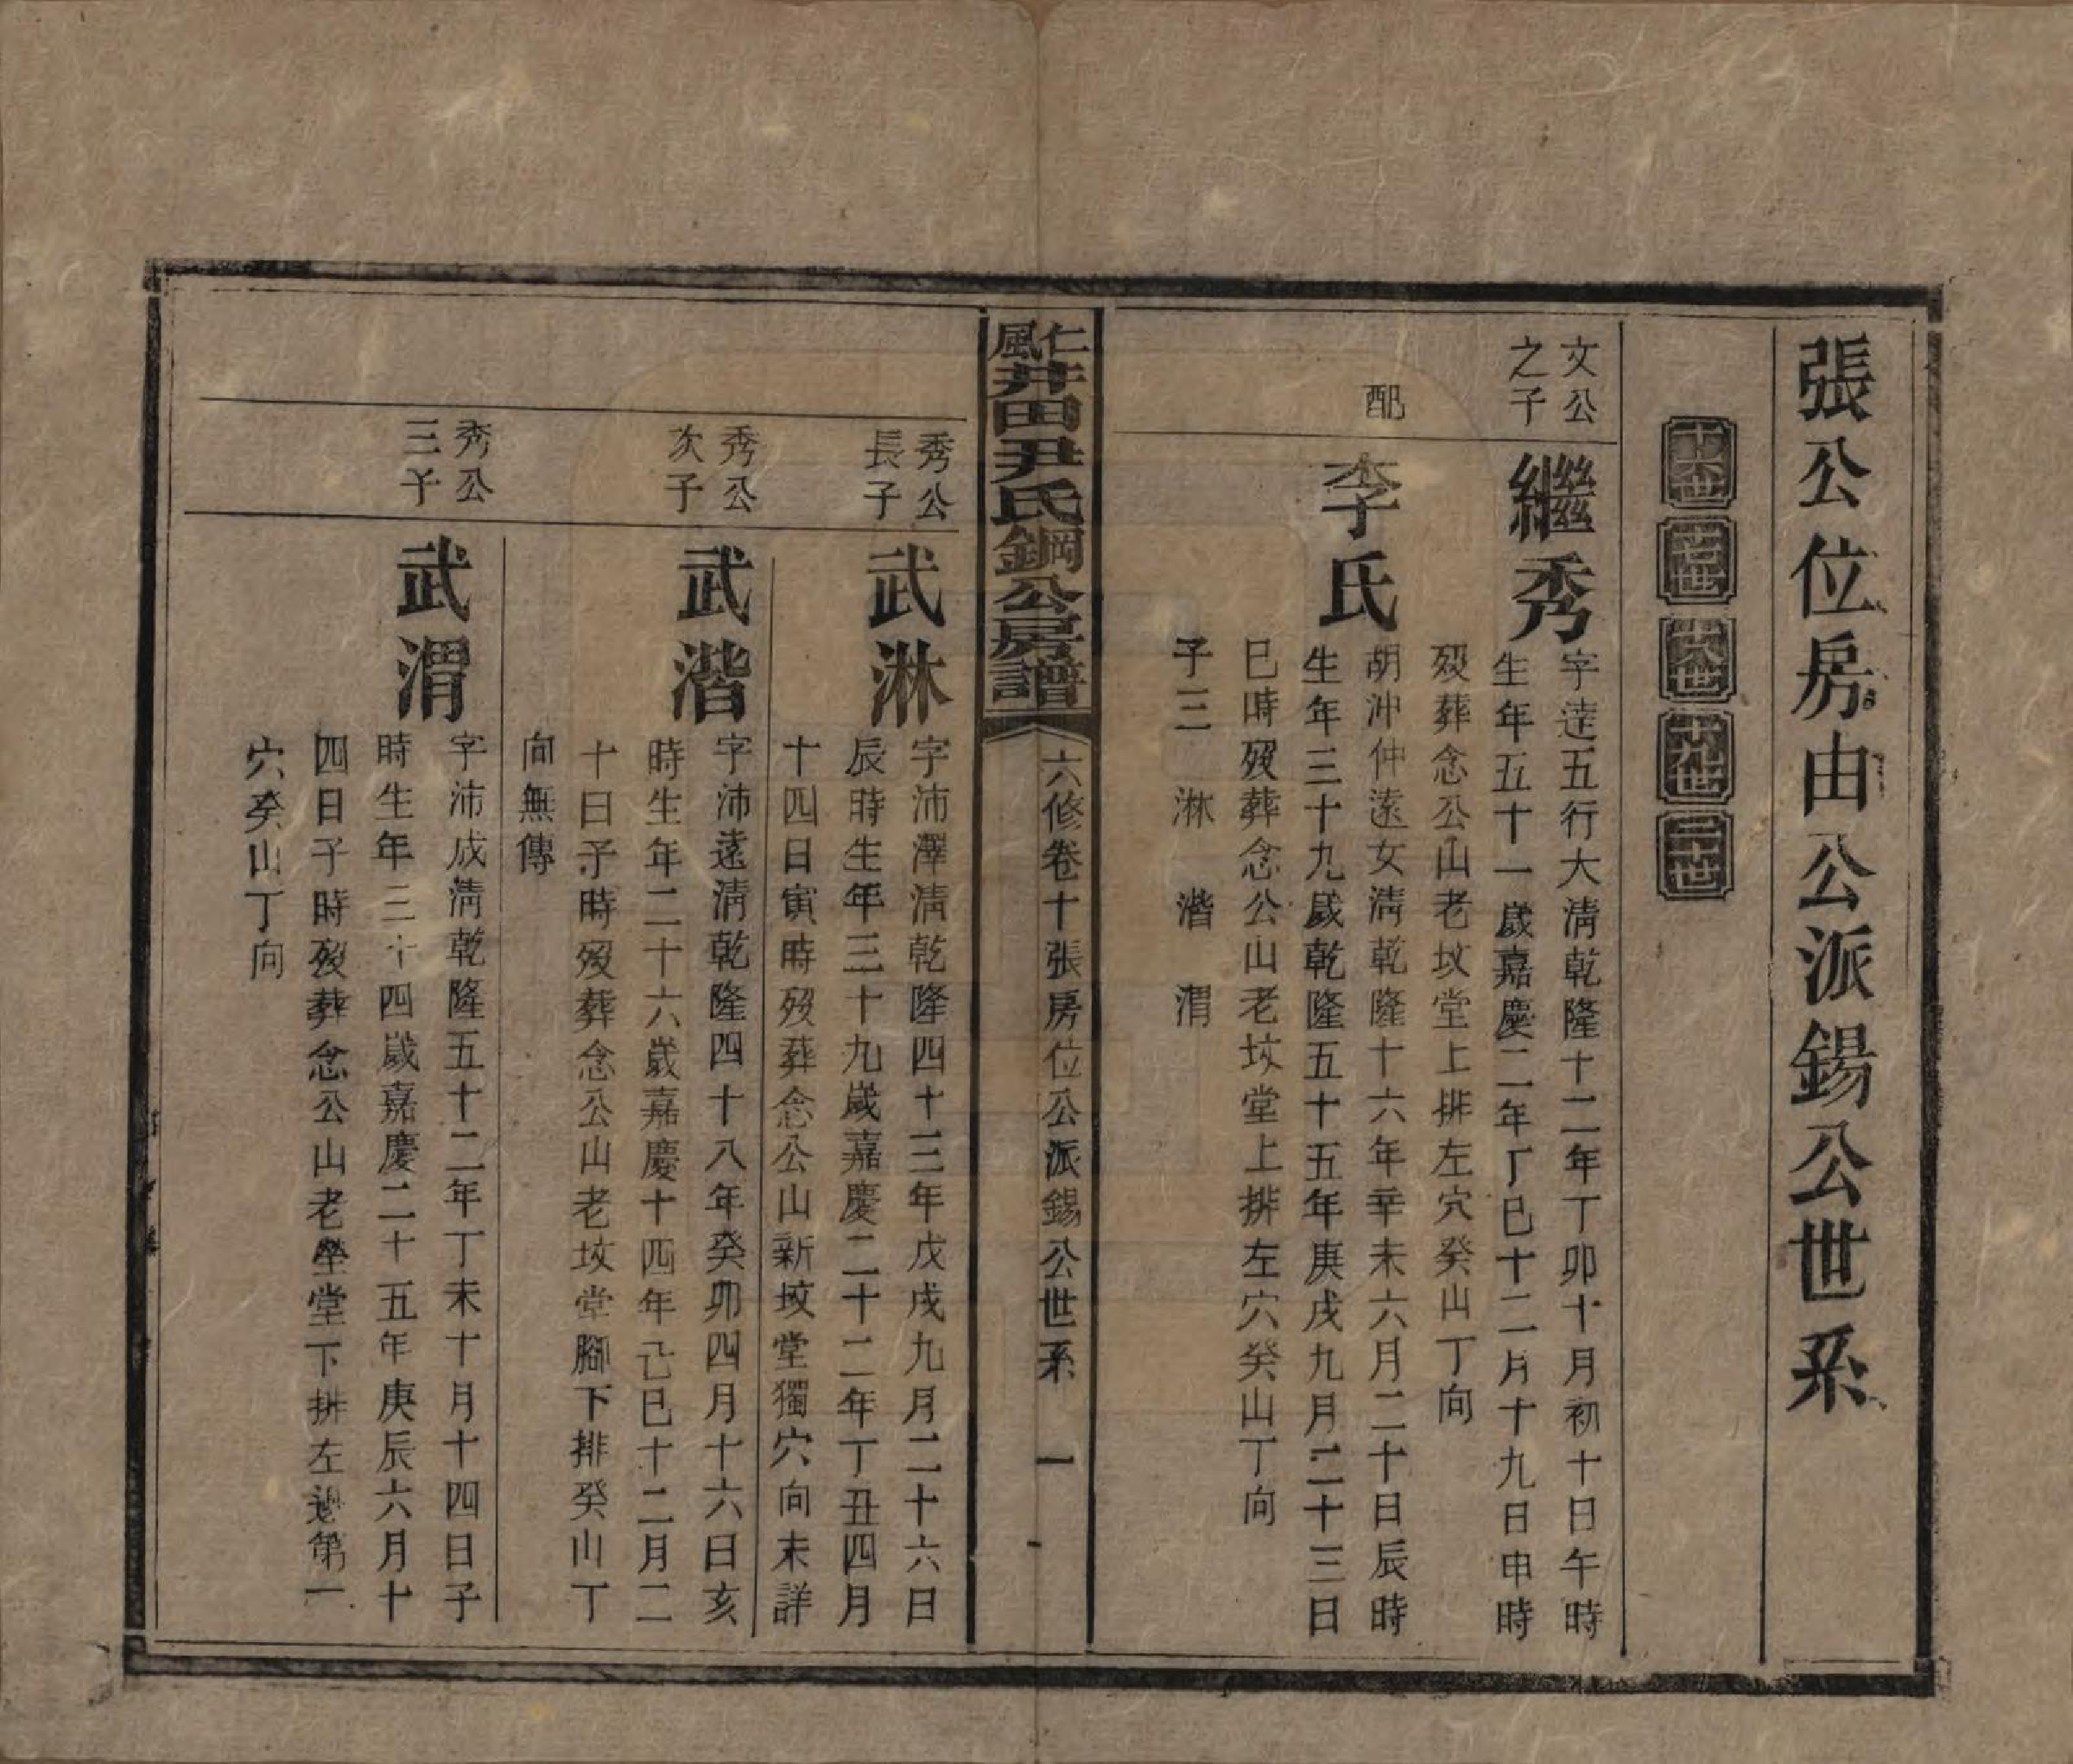 張公位房由公派錫公世系
十六世 十七世 十八世 十九世 二十世
文公之子
繼秀
字達五行大淸乾隆十二年丁卯十月初十日午時
生年五十一歲嘉慶二年丁巳十二月十九日申時
歿葬念公山老坟堂上排左穴癸山丁向
配
李氏
胡沖仲遠女淸乾隆十六年辛未六月二十日辰時
生年三十九歲乾隆五十五年庚戌九月二十三日
巳時歿葬念公山老坟堂上排左穴癸山丁向
子三 淋 湝 渭
仁風井田尹氏鋼公房譜
六修卷十張房位公派錫公世系 一
秀公長子
武淋
字沛澤淸乾隆四十三年戊戌九月二十六日
辰時生年三十九歲嘉慶二十二年丁丑四月
十四日寅時歿葬念公山新坟堂獨穴向未詳
秀公次子
武湝
字沛遠淸乾隆四十八年癸卯四月十六日亥
時生年二十六歲嘉慶十四年己巳十二月二
十日子時歿葬念公山老坟堂腳下排癸山丁
向無傳
秀公三子
武渭
字沛成淸乾隆五十二年丁未十月十四日子
時生年三十四歲嘉慶二十五年庚辰六月十
四日子時歿葬念公山老塋堂下排左邊第一
穴癸山丁向